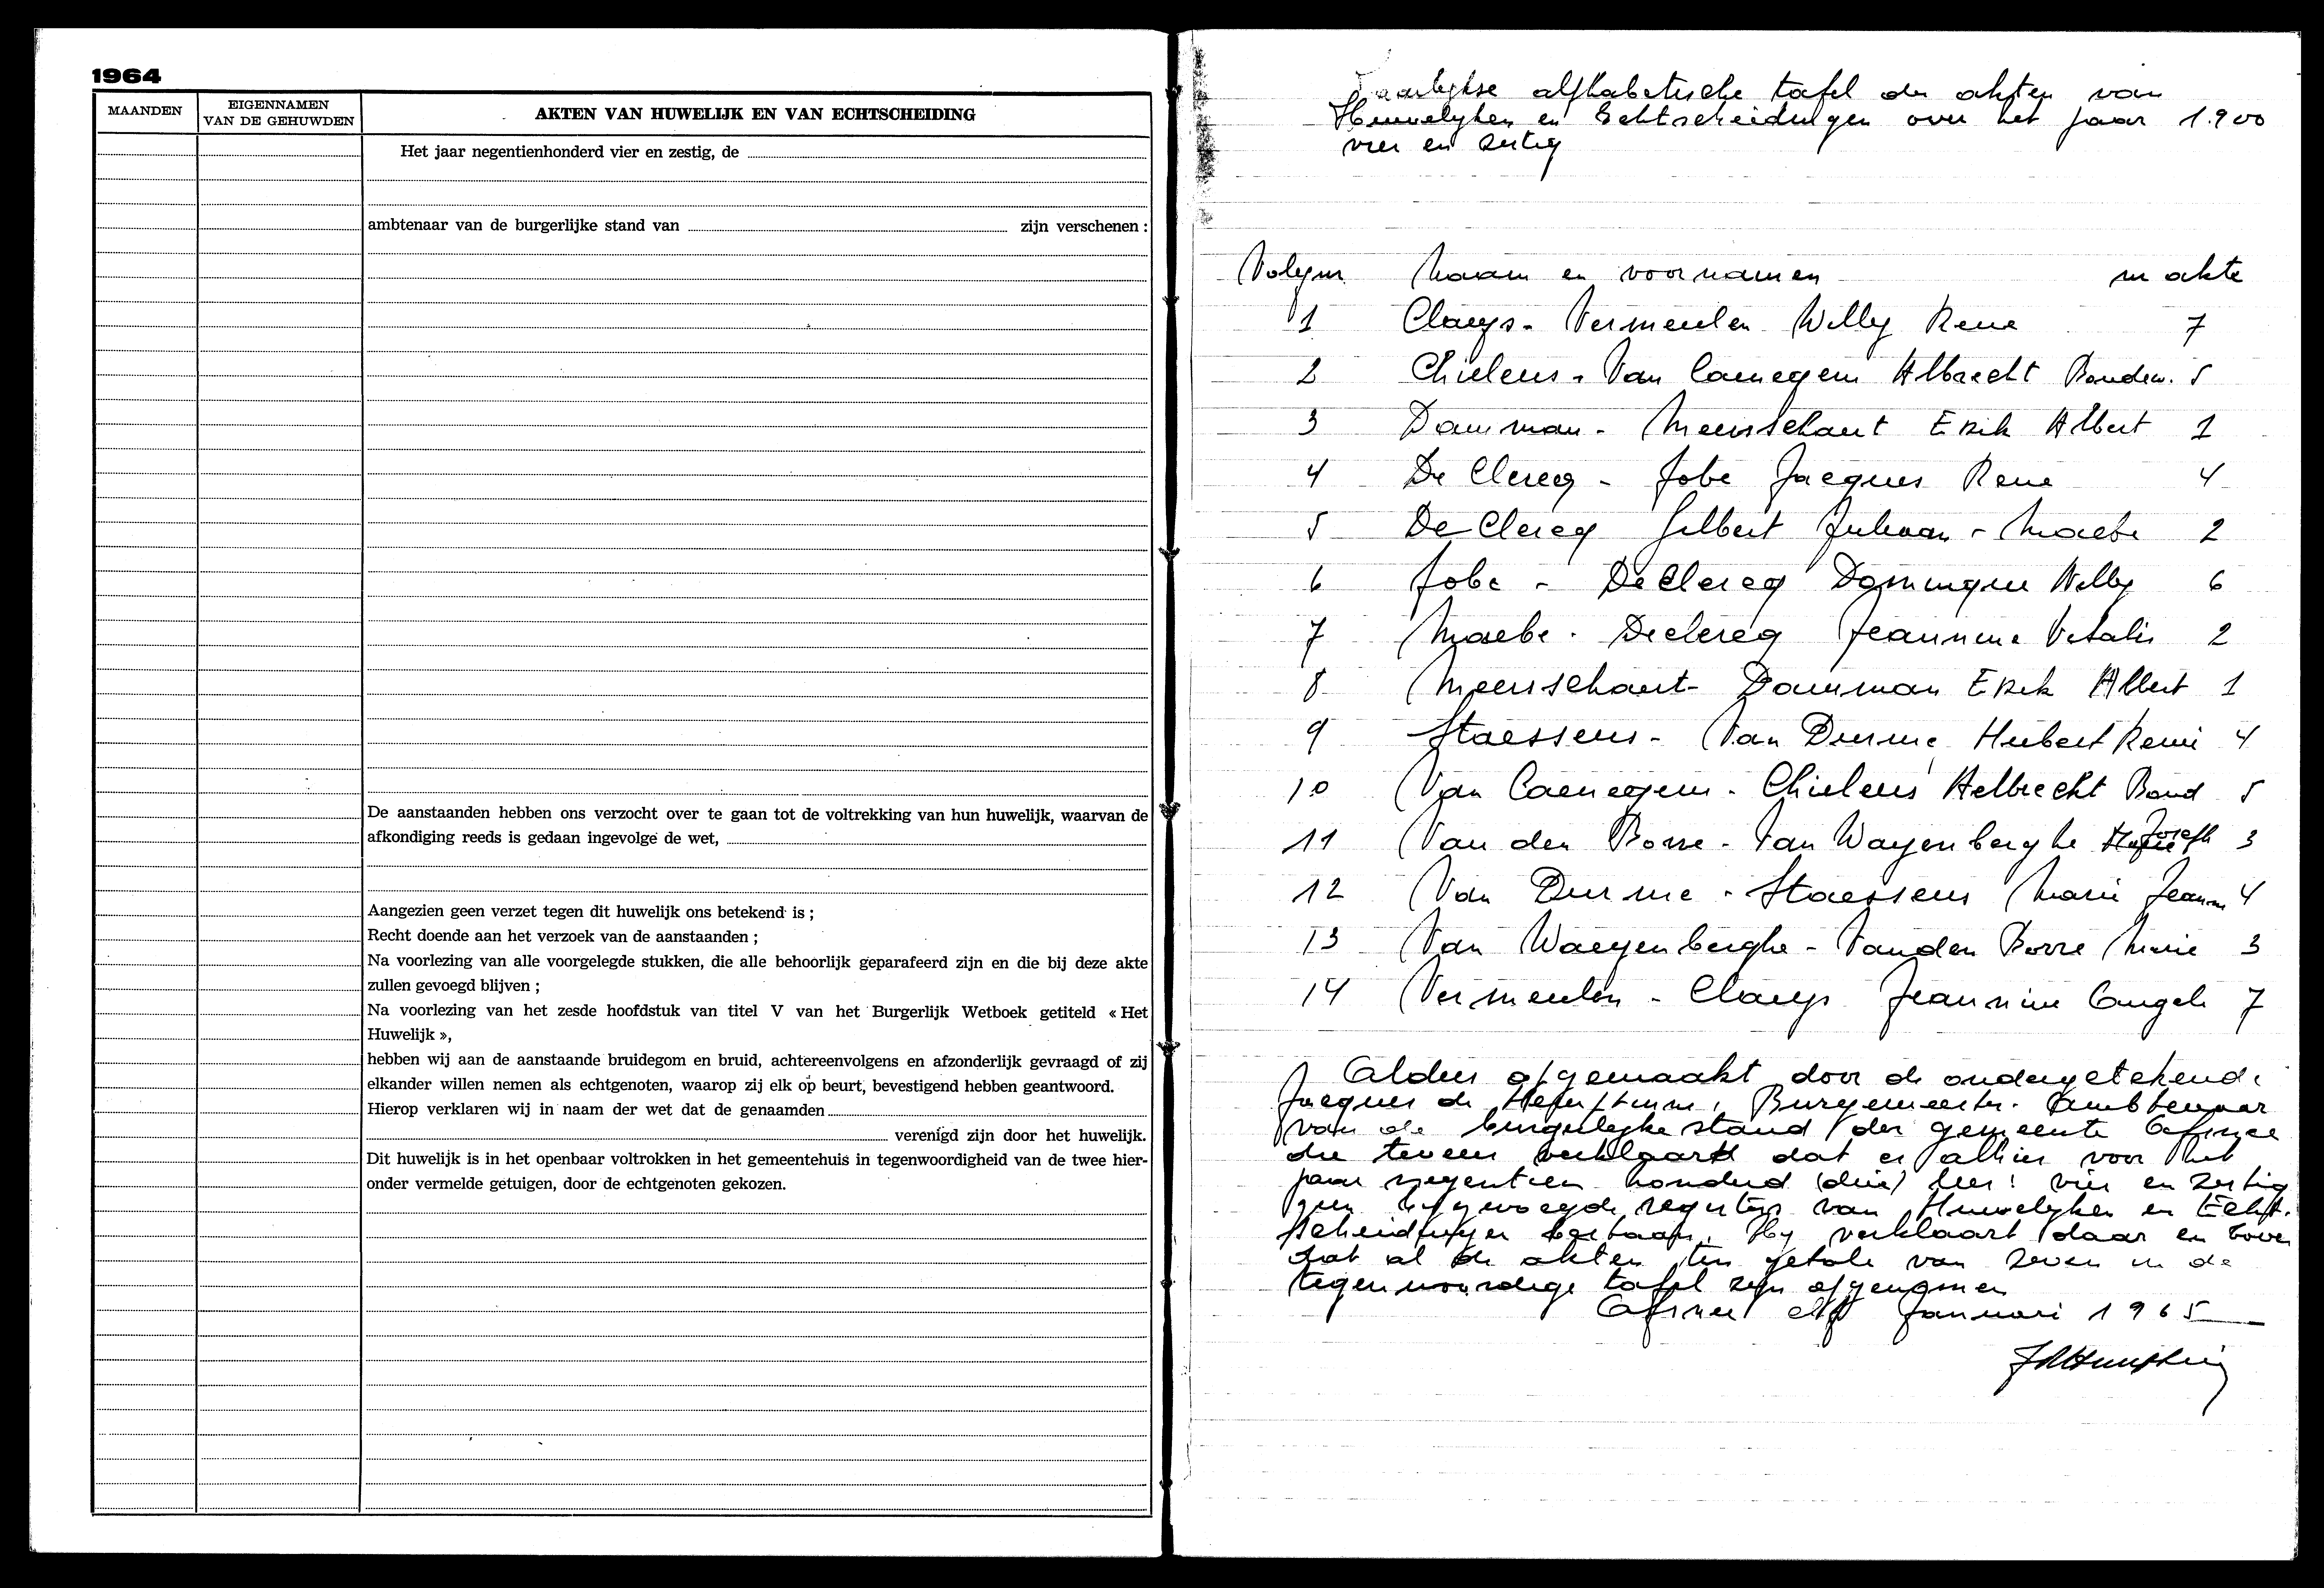 1964
MAANDEN
EIGENNAMEN
VAN DE GEHUWDEN
AKTEN VAN HUWELIJK EN VAN ECHTSCHEIDING
Het jaar negentienhonderd vier en zestig, de
ambtenaar van de burgerlijke stand van zijn verschenen :
De aanstaanden hebben ons verzocht over te gaan tot de voltrekking van hun huwelijk, waarvan de
afkondiging reeds is gedaan ingevolge de wet,
Aangezien geen verzet tegen dit huwelijk ons betekend is ;
Recht doende aan het verzoek van de aanstaanden ;
Na voorlezing van alle voorgelegde stukken, die alle behoorlijk geparafeerd zijn en die bij deze akte
zullen gevoegd blijven ;
Na voorlezing van het zesde hoofdstuk van titel V van het Burgerlijk Wetboek getiteld « Het
Huwelijk »,
hebben wij aan de aanstaande bruidegom en bruid, achtereenvolgens en afzonderlijk gevraagd of zij
elkander willen nemen als echtgenoten, waarop zij elk op beurt, bevestigend hebben geantwoord.
Hierop verklaren wij in naam der wet dat de genaamden
verenigd zijn door het huwelijk.
Dit huwelijk is in het openbaar voltrokken in het gemeentehuis in tegenwoordigheid van de twee hier-
onder vermelde getuigen, door de echtgenoten gekozen.
Jaarlykse alfhabetische tafel der akten van
Huwelyken en Echtscheidingen over het jaar 1.900
vier en zestig
Volgnr Naam en voornamen nr akte
1 Claeys - Vermeulen Willy Rene 7
2 Chielens - Van Caenegem Albrecht Boudew. 5
3 Damman - Meersschaut Erik Albert 1
4 De Clercq - Jobe Jacques Rene 4
5 De Clercq Gilbert Juliaan - Maebe 2
6 Jobe - De Clercq Dominque Willy 6
7 Maebe - Declercq Jeannine Vitalis 2
8 Meersschaut - Damman Erik Albert 1
9 Staessens - Van Durme Hubert Remi 4
10 Van Caenegem - Chielens Aelbrecht Boud 5
11 Van den Borre - Van Wayenberghe Joseph 3
12 Van Durme - Staessens Marie Jeann 4
13 Van Waeyenberghe - Vanden Borre Marie 3
14 Vermeulen - Claeys Jeannine 7
Aldus opgemaakt door de ondergetekende
Jacques de Hemptinne, Burgemeester. Ambtenaar
van de burgerlyke stand der gemeente Afsnee
die tevens verklaart dat er alhier voor het
jaar negentien honderd (drie) lees : vier en zestig
geen bygevoegde registers van Huwelyken en Echt-
scheidingen bestaan. Hy verklaart daar en boven
dat al de akten ten getale van zeven in de
tegenwoordige tafel zyn opgenomen
Afsnee elf Januari 1965